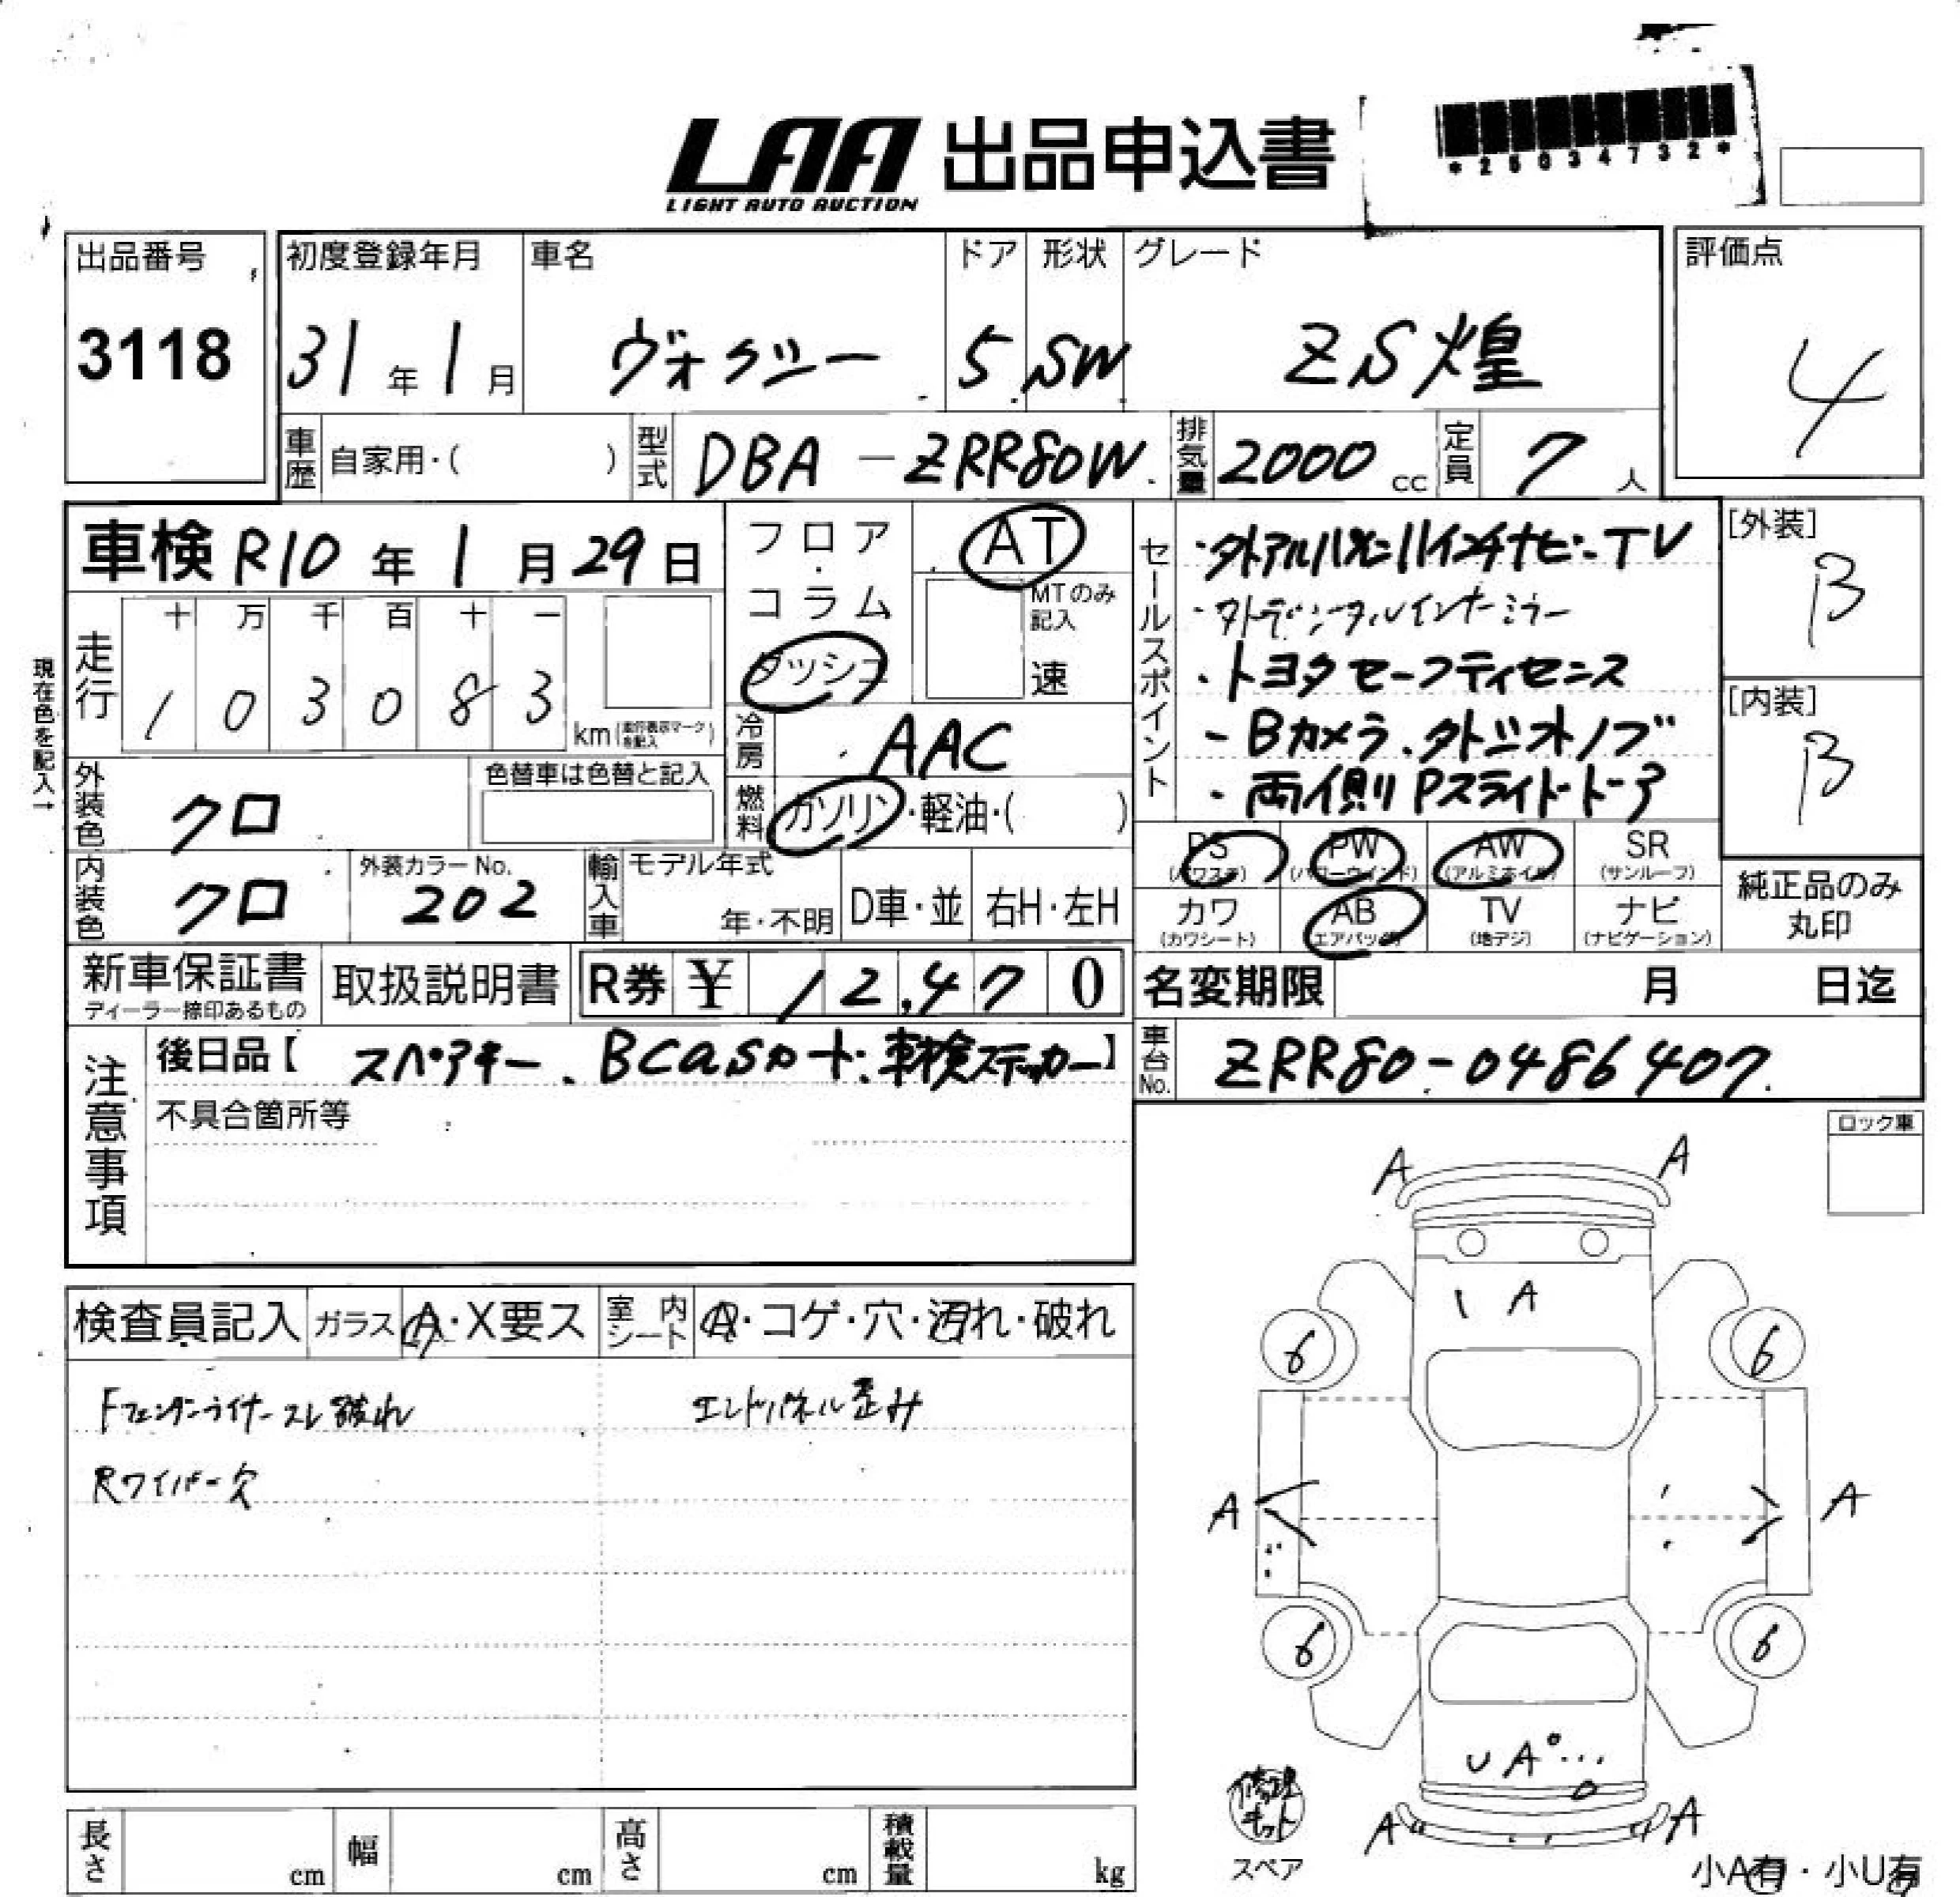 LAA 出品申込書
LIGHT AUTO AUCTION
*25034732*
出品番号
3118
初度登録年月
31年1月
車名
ヴォクシー
ドア
5
形状
SW
グレード
ZS煌
評価点
4
車歴 自家用・( )
型式 DBA-ZRR80W
排気量 2000 cc
定員 7 人
車検 R10年1月29日
走行
十 万 千 百 十 一
1 0 3 0 8 3
km
現在色を記入→
フロア
・
コラム
ダッシュ
AT
MTのみ記入
速
冷房 AAC
燃料 ガソリン・軽油・( )
セールスポイント
・外アルパイン11インチナビ-TV
・外デジタルインナーミラー
・トヨタセーフティセンス
-Bカメラ.
・両側Pスライドドア
[外装]
B
[内装]
B
外装色 クロ
色替車は色替と記入
内装色 クロ
外装カラーNo.
202
輸入車
モデル年式
年・不明
D車・並
右H・左H
PS (パワステ)
PW (パワーウインド)
AW (アルミホイル)
SR (サンルーフ)
カワ (カワシート)
AB エアバッグ
TV (地デジ)
ナビ (ナビゲーション)
純正品のみ
丸印
新車保証書
ディーラー捺印あるもの
取扱説明書
R券 ¥ 12,470
名変期限 月 日迄
車台No. ZRR80-0486407
注意事項
後日品【スペアキー、BCasカード、車検ステッカー】
不具合箇所等
ロック車
検査員記入
ガラス A・X要ス
室内シート A・コゲ・穴・汚れ・破れ
Fフェンダーライナースレ破れ
エンドパネル歪み
Rワイパー欠
A A
A
6 6
A A
6 6
U A
A A
修理キット
スペア
小A有・小U有
長さ cm
幅 cm
高さ cm
積載量 kg